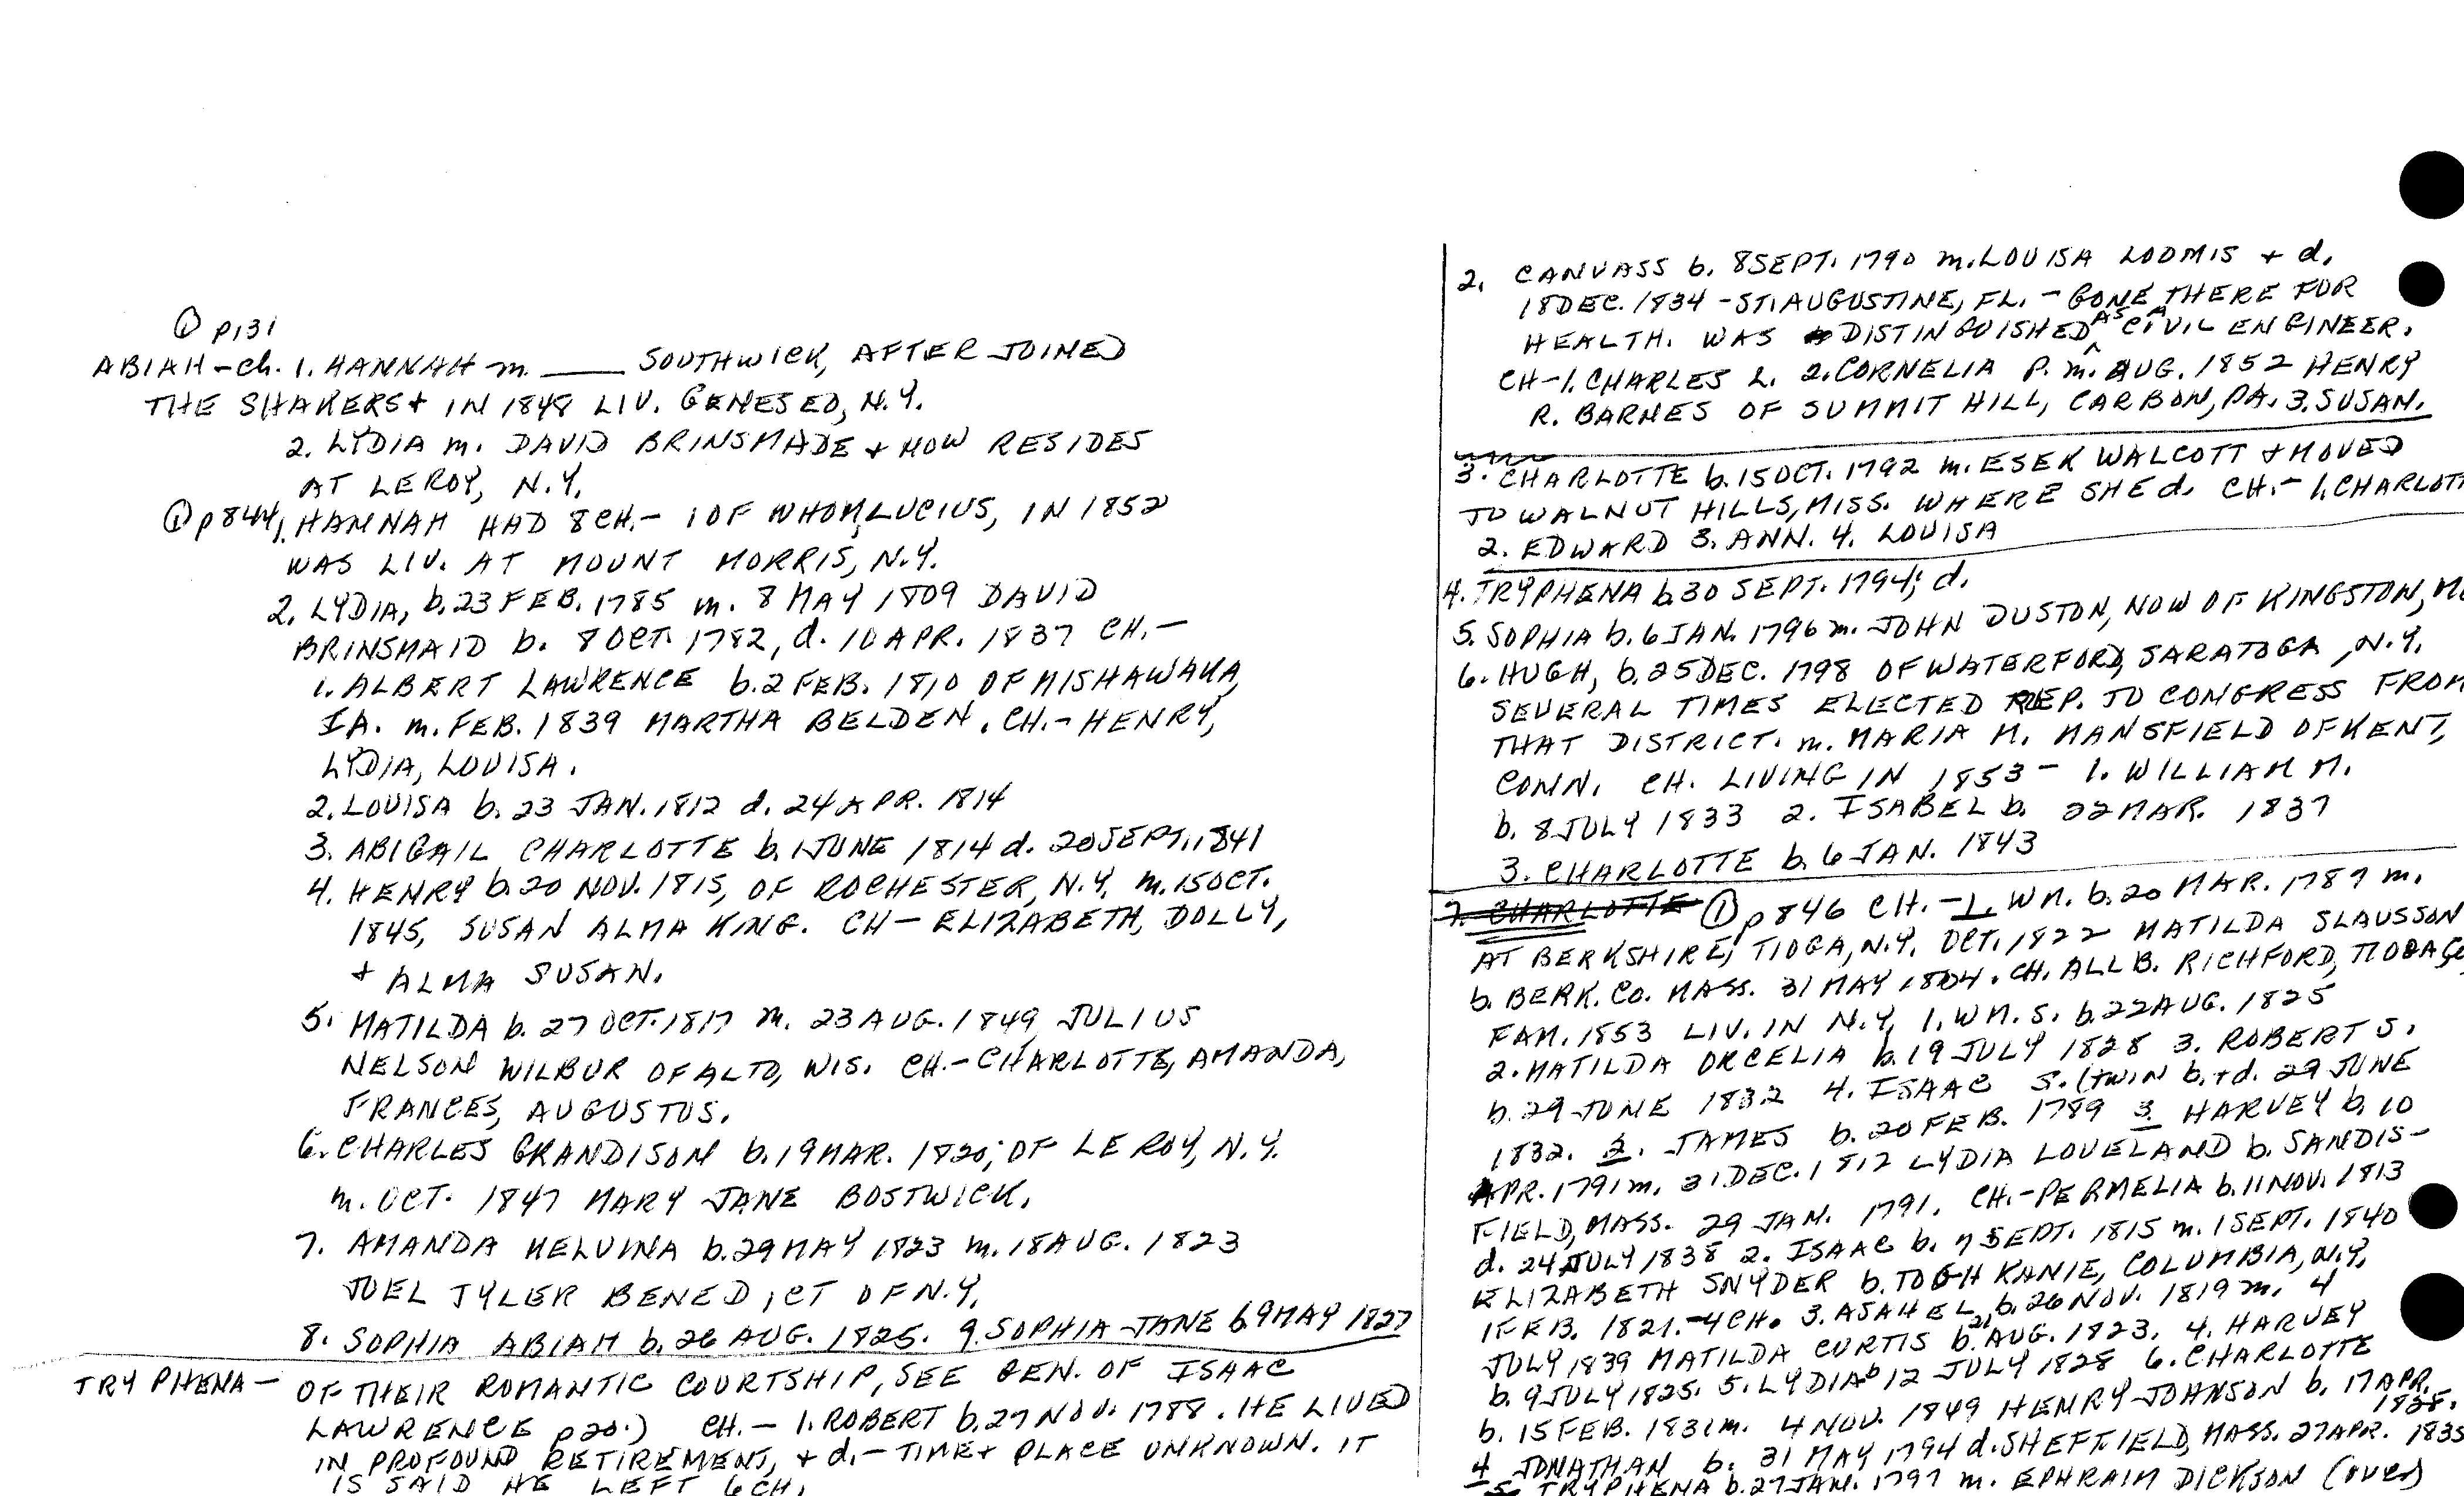 ① p131
ABIAH - Ch. 1. HANNAH m. ____ SOUTHWICK, AFTER JOINED
THE SHAKERS + IN 1848 LIV. GENESEO, N.Y.
2. LYDIA m. DAVID BRINSMADE + NOW RESIDES
AT LEROY, N.Y.
① p844, 1. HANNAH HAD 8 CH. - 1 OF WHOM, LUCIUS, IN 1852
WAS LIV. AT MOUNT MORRIS, N.Y.
2. LYDIA, b. 23 FEB. 1785 m. 8 MAY 1809 DAVID
BRINSMAID b. 8 OCT. 1782, d. 10 APR. 1837 CH. -
1. ALBERT LAWRENCE b. 2 FEB. 1810 OF MISHAWAKA,
IA. m. FEB. 1839 MARTHA BELDEN. CH. - HENRY,
LYDIA, LOUISA.
2. LOUISA b. 23 JAN. 1812 d. 24 APR. 1814
3. ABIGAIL CHARLOTTE b. 1 JUNE 1814 d. 20 SEPT. 1841
4. HENRY b. 20 NOV. 1815, OF ROCHESTER, N.Y. m. 15 OCT.
1845, SUSAN ALMA KING. CH - ELIZABETH, DOLLY,
+ ALMA SUSAN.
5. MATILDA b. 27 OCT. 1817 m. 23 AUG. 1849 JULIUS
NELSON WILBUR OF ALTO, WIS. CH. - CHARLOTTE, AMANDA,
FRANCES, AUGUSTUS.
6. CHARLES GRANDISON b. 19 MAR. 1820; OF LE ROY, N.Y.
m. OCT. 1847 MARY JANE BOSTWICK.
7. AMANDA MELVINA b. 29 MAY 1823 m. 18 AUG. 1823
JOEL TYLER BENEDICT OF N.Y.
8. SOPHIA ABIAH b. 26 AUG. 1825. 9. SOPHIA JANE b. 9 MAY 1827
TRYPHENA - OF THEIR ROMANTIC COURTSHIP, SEE GEN. OF ISAAC
LAWRENCE p20.) CH. - 1. ROBERT b. 27 NOV. 1788. HE LIVED
IN PROFOUND RETIREMENT, + d. - TIME + PLACE UNKNOWN. IT
IS SAID HE LEFT 6 CH.
2. CANVASS b. 8 SEPT. 1790 m. LOUISA LOOMIS + d.
18 DEC. 1834 - ST. AUGUSTINE, FL. - GONE THERE FOR
HEALTH. WAS DISTINGUISHED AS A CIVIL ENGINEER.
CH - 1. CHARLES L. 2. CORNELIA P. m. AUG. 1852 HENRY
R. BARNES OF SUMMIT HILL, CARBON, PA. 3. SUSAN.
3. CHARLOTTE b. 15 OCT. 1792 m. ESEK WALCOTT + MOVED
TO WALNUT HILLS, MISS. WHERE SHE d. CH. - 1. CHARLOTT
2. EDWARD 3. ANN. 4. LOUISA
4. TRYPHENA b. 30 SEPT. 1794; d.
5. SOPHIA b. 6 JAN. 1796 m. JOHN DUSTON, NOW OF KINGSTON,
6. HUGH, b. 25 DEC. 1798 OF WATERFORD, SARATOGA, N.Y.
SEVERAL TIMES ELECTED REP. TO CONGRESS FROM
THAT DISTRICT. m. MARIA M. MANSFIELD OF KENT,
CONN. CH. LIVING IN 1853 - 1. WILLIAM M.
b. 8 JULY 1833 2. ISABEL b. 22 MAR. 1837
3. CHARLOTTE b. 6 JAN. 1843
7. CHARLOTTE ① p846 CH. - 1. WM. b. 20 MAR. 1787 m.
AT BERKSHIRE, TIOGA, N.Y. OCT. 1822 MATILDA SLAUSSON
b. BERK. CO. MASS. 31 MAY 1804. CH. ALL B. RICHFORD, TIOGA CO,
FAM. 1853 LIV. IN N.Y. 1. WM. S. b. 22 AUG. 1825
2. MATILDA ORCELIA b. 19 JULY 1828 3. ROBERT S.
b. 29 JUNE 1832 4. ISAAC S. (TWIN b. + d. 29 JUNE
1832. 2. JAMES b. 20 FEB. 1789 3. HARVEY b. 10
APR. 1791 m. 31 DEC. 1812 LYDIA LOVELAND b. SANDIS-
FIELD, MASS. 29 JAN. 1791. CH. - PERMELIA b. 11 NOV. 1813
d. 24 JULY 1838 2. ISAAC b. 7 SEPT. 1815 m. 1 SEPT. 1840
ELIZABETH SNYDER b. TOGHKANIE, COLUMBIA, N.Y.
1 FEB. 1821. - 4 CH. 3. ASAHEL, b. 26 NOV. 1819 m. 4
JULY 1839 MATILDA CURTIS b. 21 AUG. 1823. 4. HARVEY
b. 9 JULY 1825. 5. LYDIA b 12 JULY 1828 6. CHARLOTTE
b. 15 FEB. 1831 m. 4 NOV. 1849 HENRY JOHNSON b. 17 APR.
1828.
4 JONATHAN b. 31 MAY 1794 d. SHEFFIELD, MASS. 27 APR. 1835
5 TRYPHENA b. 27 JAN. 1797 m. EPHRAIM DICKSON (over)